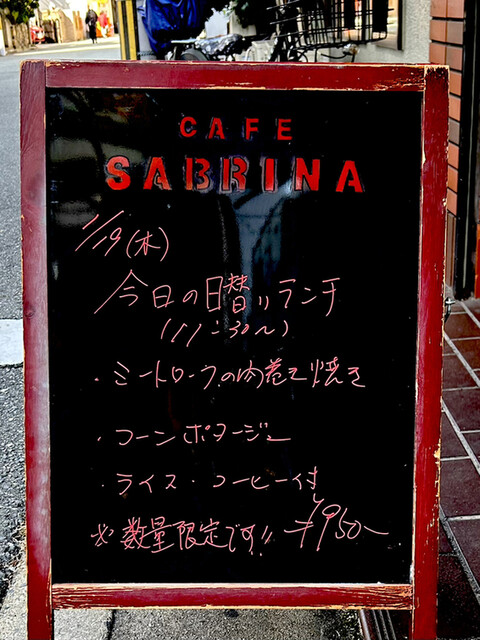 CAFE
SABRINA
1/19(木)
今日の日替りランチ
(11:30~)
・ミートローフの肉巻き焼き
・コーンポタージュ
・ライス・コーヒー付
※数量限定です!! ¥950-